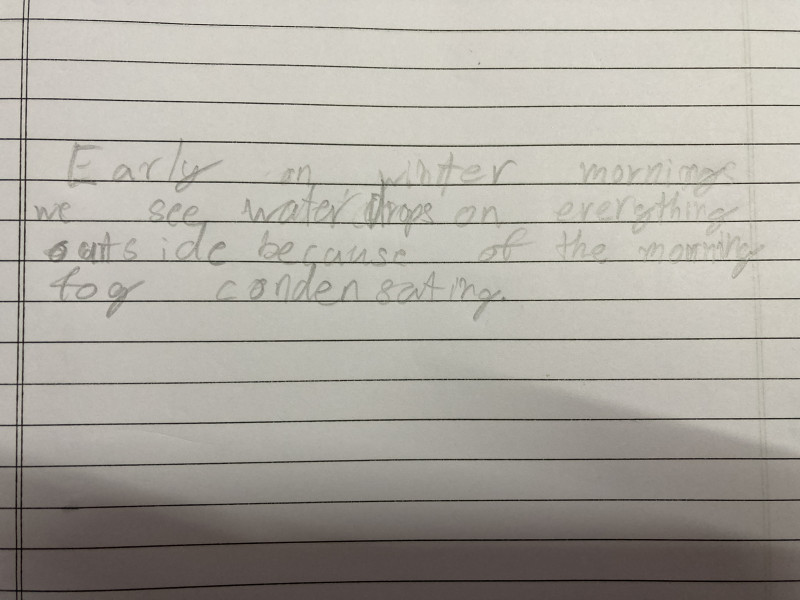 Early on winter mornings
we see water drops on everything
outside because of the morning
fog condensating.